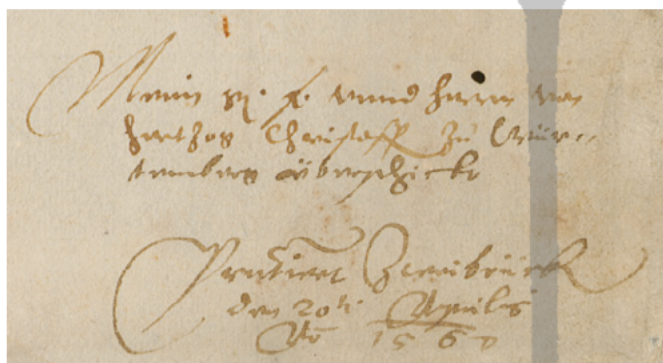 Meim g. f. unnd herrn von
hertzog Christoff zu Würt-
temberg überschickt
Praesentirt Zweibrückh
den 20ti Aprilis
Ao 1560